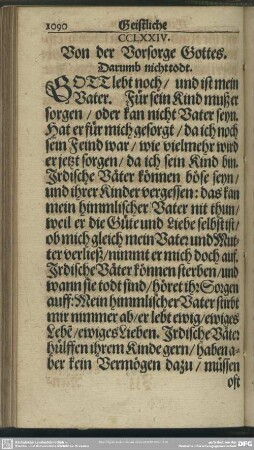 1090 Geistliche
CCLXXIV.
Von der Vorsorge Gottes.
Darumb nicht todt.
GOTT lebt noch / und ist mein
Vater. Für sein Kind mußer
sorgen / oder kan nicht Vater seyn.
Hat er für mich gesorgt / da ich noch
sein Feind war / wie vielmehr wird
er jetzt sorgen / da ich sein Kind bin.
Irdische Väter können böse seyn /
und ihrer Kinder vergessen: das kan
mein himmlischer Vater nit thun /
weil er die Güte und Liebe selbst ist /
ob mich gleich mein Vater und Mut-
ter verließ / nimmt er mich doch auf.
Irdische Väter können sterben / und
wann sie todt sind / höret ihr Sorgen
auff: Mein himmlischer Vater stirbt
mir nimmer ab / er lebt ewig / ewiges
Lebē / ewiges Lieben. Irdische Väter
hülffen ihrem Kinde gern / haben a-
ber kein Vermögen dazu / müssen
oft